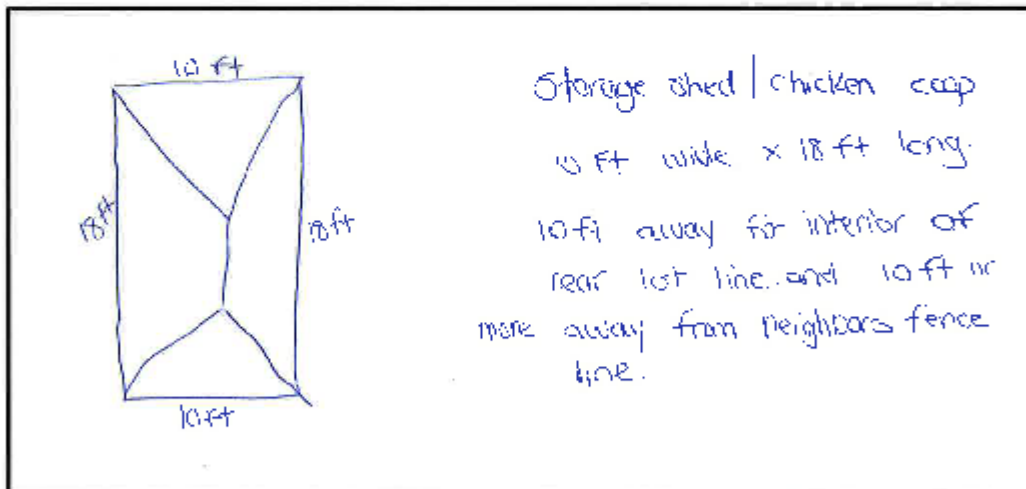 10 ft
18 ft
18 ft
10 ft
Storage shed | chicken coop
10 ft wide x 18 ft long.
10 ft away for interior of
rear lot line and 10 ft or
more away from neighbors fence
line.